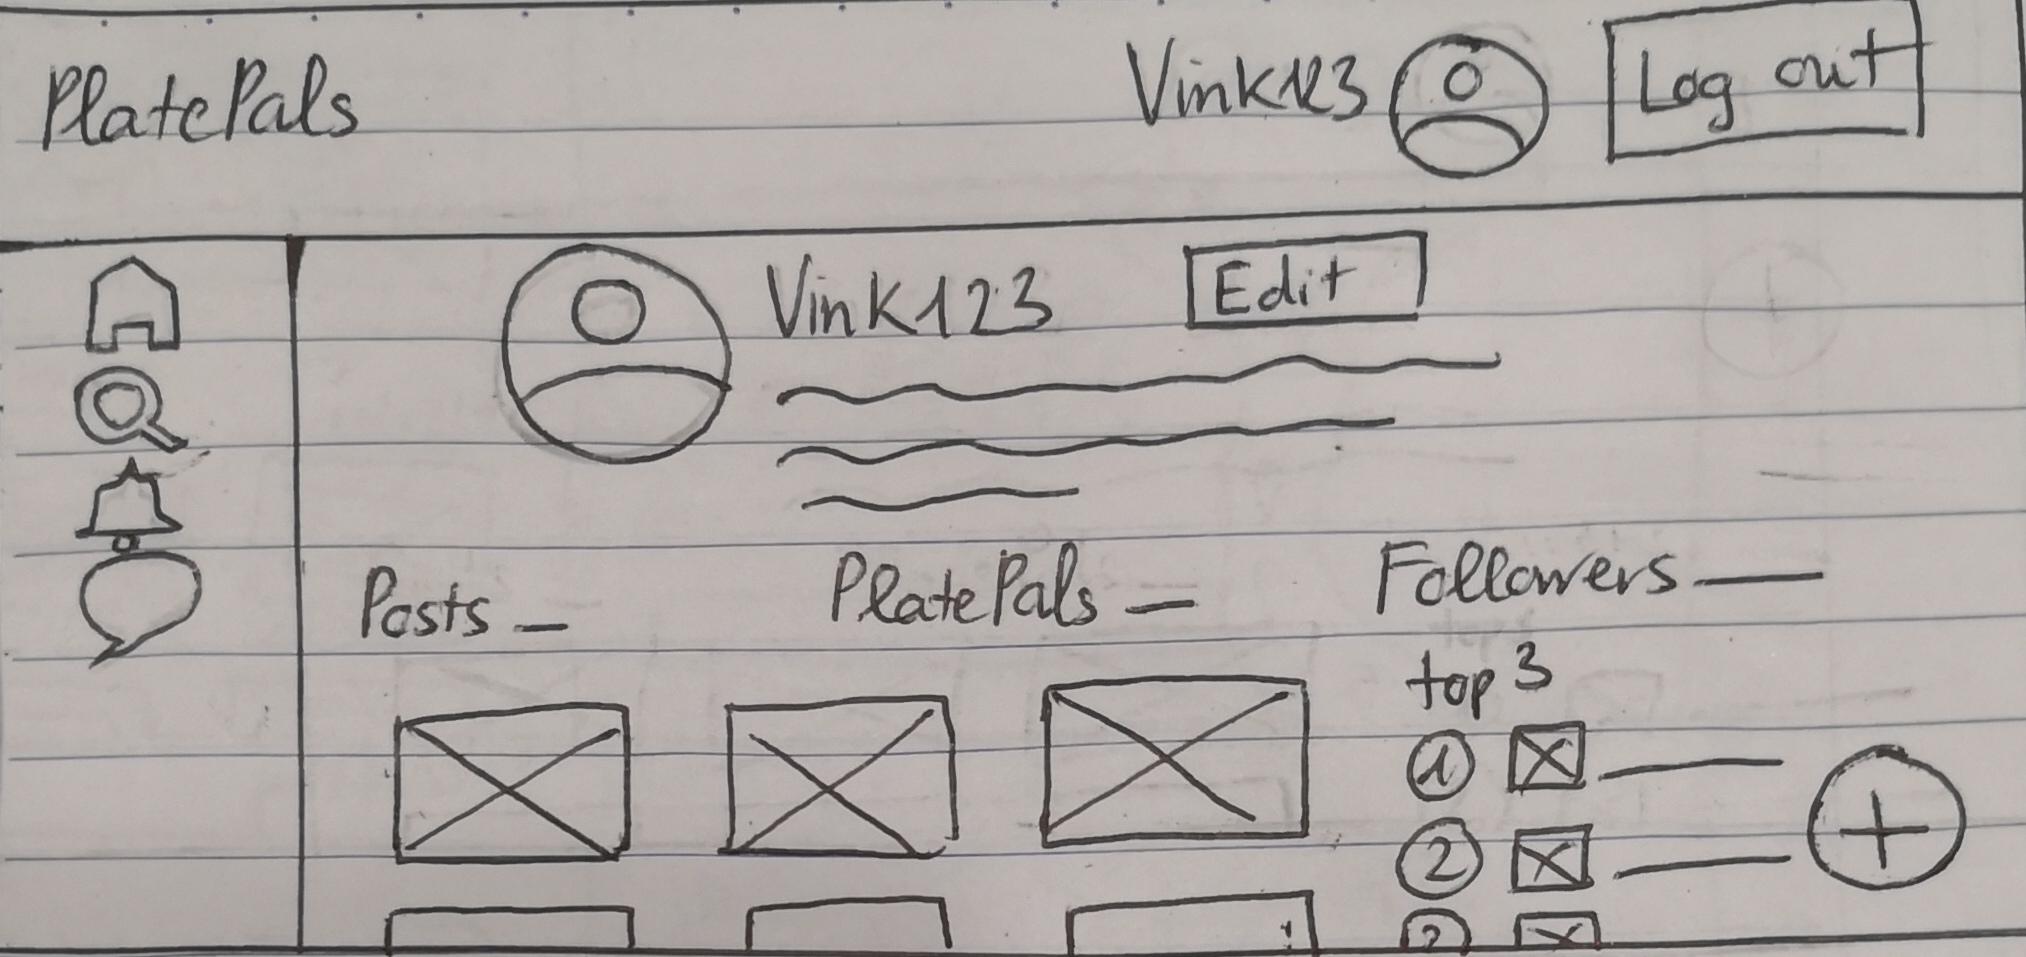 PlatePals Vink123 Log out
Vink123 Edit
Posts PlatePals Followers
top 3
1
2